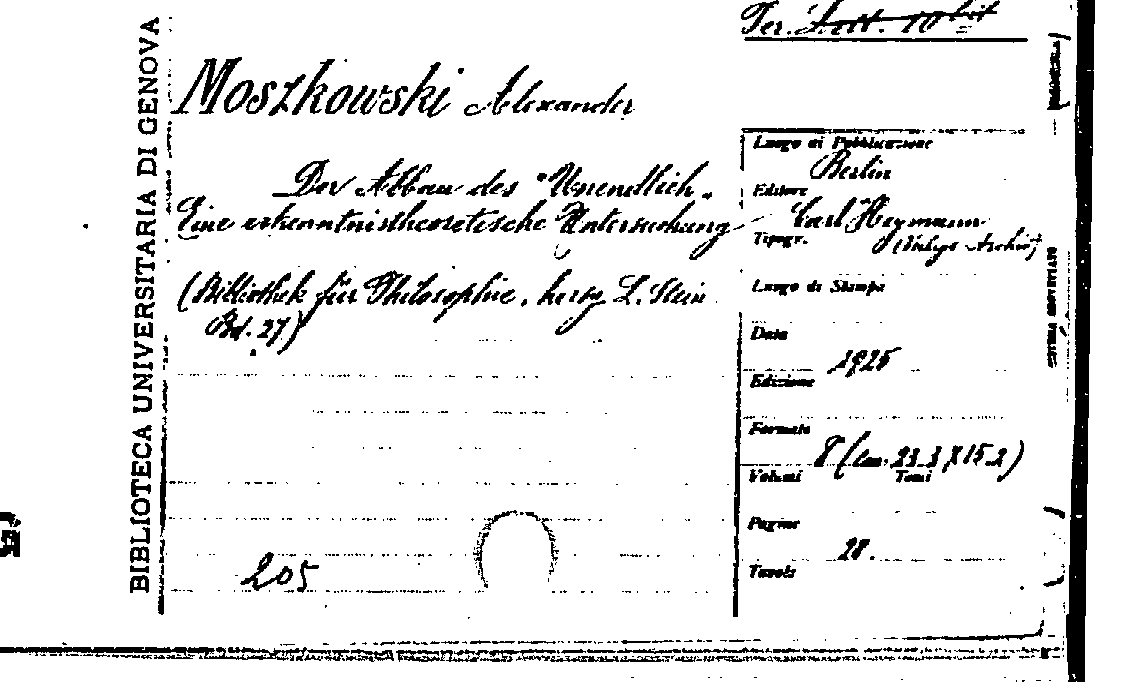 Ter. Lett. 10 bit
BIBLIOTECA UNIVERSITARIA DI GENOVA
Moszkowski Alexander
Der Abbau des "Unendlich"
Eine erkenntnistheoretische Untersuchung
(Bibliothek für Philosophie, hersg L. Stein
Bd. 27)
205
Luogo di Pubblicazione
Berlin
Editore
Carl Heymann
Tipogr.
Luogo di Stampa
Data
1925
Edizione
Formato
8 (cm. 23.3 X 15.2)
Volumi Tomi
Pagine
28.
Tavole